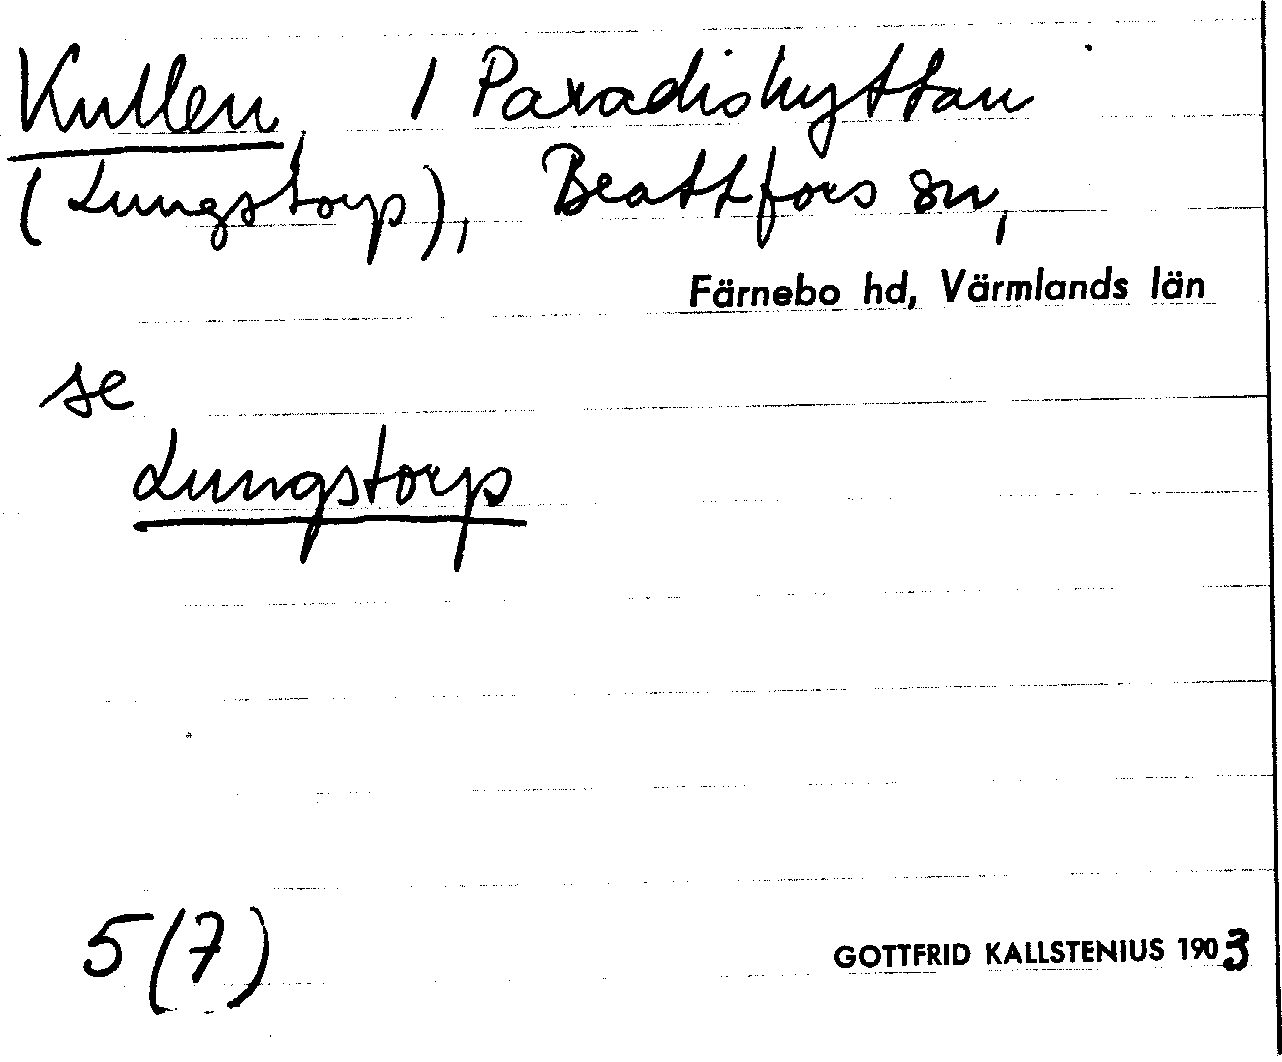 Kullen, 1 Paradishyttan
(Lungstorp), Brattfors sn,
Färnebo hd, Värmlands län
se
Lungstorp
5(7)
GOTTFRID KALLSTENIUS 1903